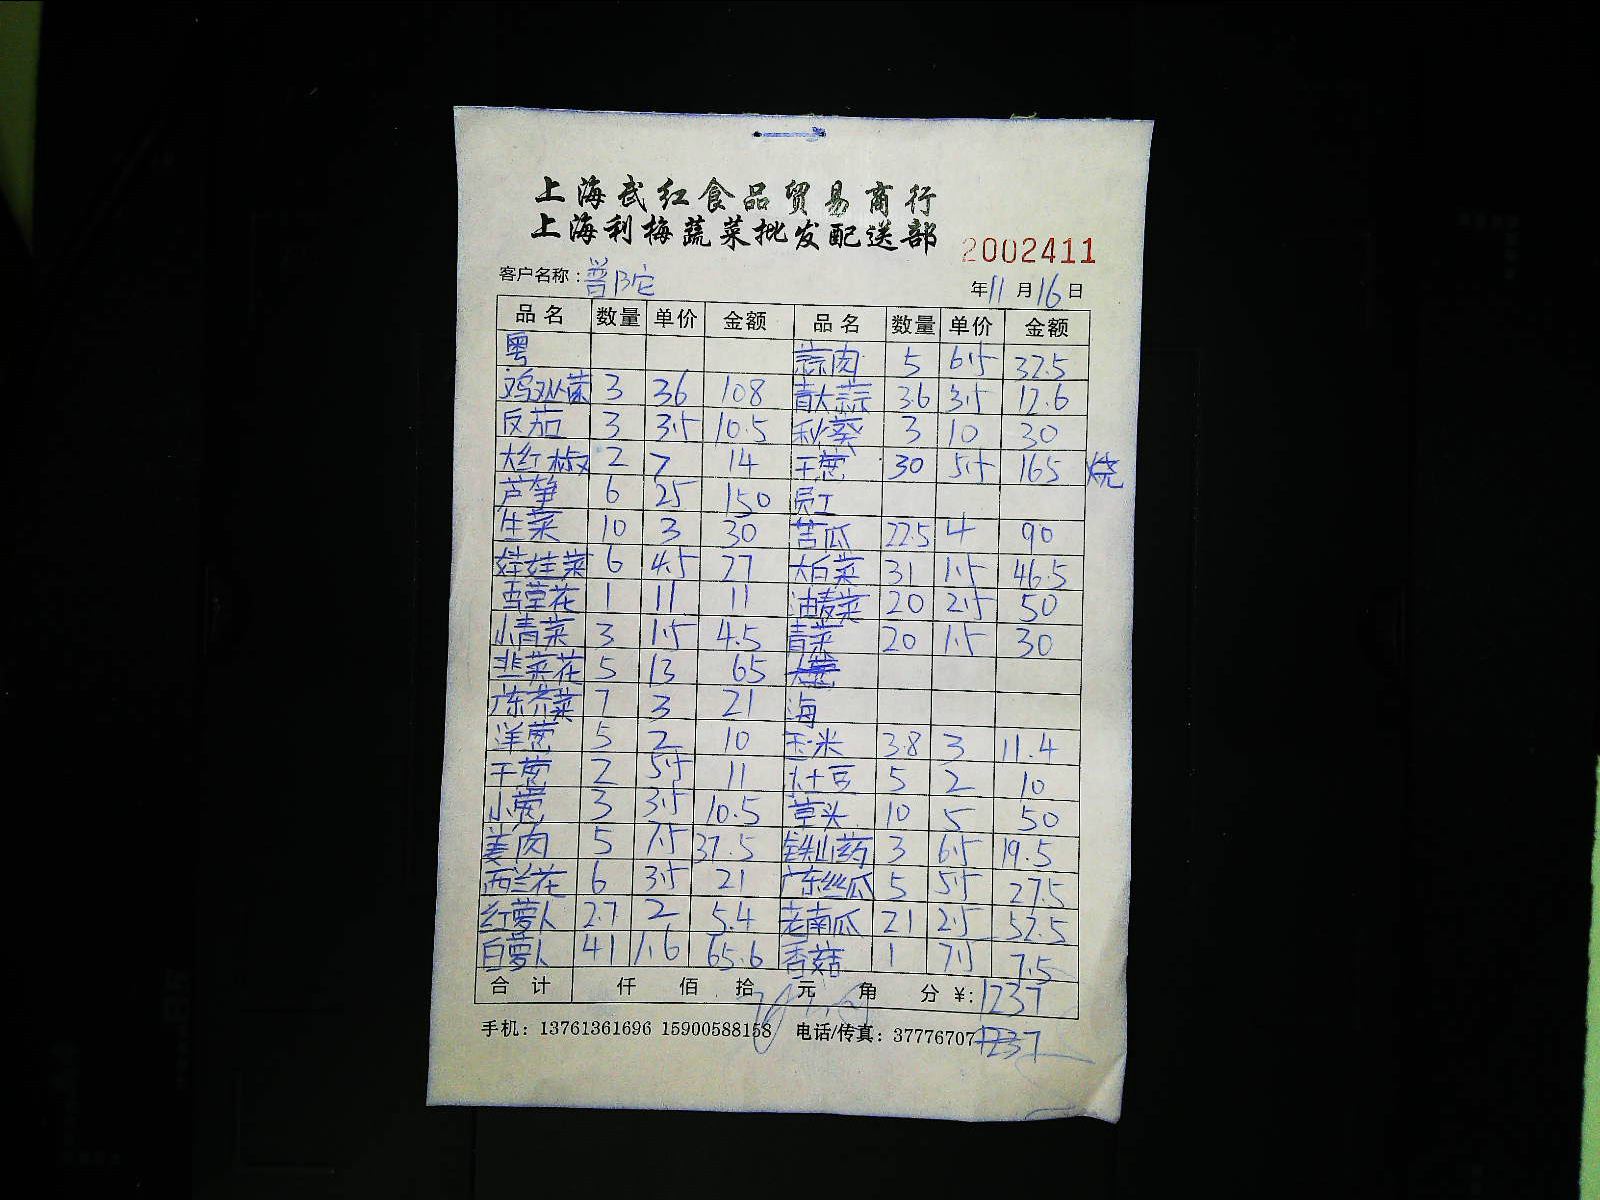 上海武红食品贸易商行
上海利梅蔬菜批发配送部
2002411
客户名称：普陀 年11月16日
品名 数量 单价 金额 品名 数量 单价 金额
粤 蒜肉 5 6.5 32.5
鸡枞菌 3 36 108 青大蒜 3.6 3.5 12.6
反茄 3 3.5 10.5 秋葵 3 10 30
大红椒 2 7 14 干葱 30 5.5 165 烧
芦笋 6 25 150 员工
生菜 10 3 30 苦瓜 22.5 4 90
娃娃菜 6 4.5 27 大白菜 31 1.5 46.5
雪草花 1 11 11 油麦菜 20 2.5 50
小青菜 3 1.5 4.5 青菜 20 1.5 30
韭菜花 5 13 65
广东芥菜 7 3 21 海
洋葱 5 2 10 玉米 3.8 3 11.4
干葱 2 5.5 11 土豆 5 2 10
小葱 3 3.5 10.5 草头 10 5 50
姜肉 5 7.5 37.5 铁山药 3 6.5 19.5
西兰花 6 3.5 21 广东丝瓜 5 5.5 27.5
红萝卜 2.7 2 5.4 老南瓜 21 2.5 52.5
白萝卜 41 1.6 65.6 香菇 1 7.5 7.5
合计 仟 佰 拾 元 角 分 ¥：1237
手机：13761361696 15900588158 电话/传真：37776707 1237